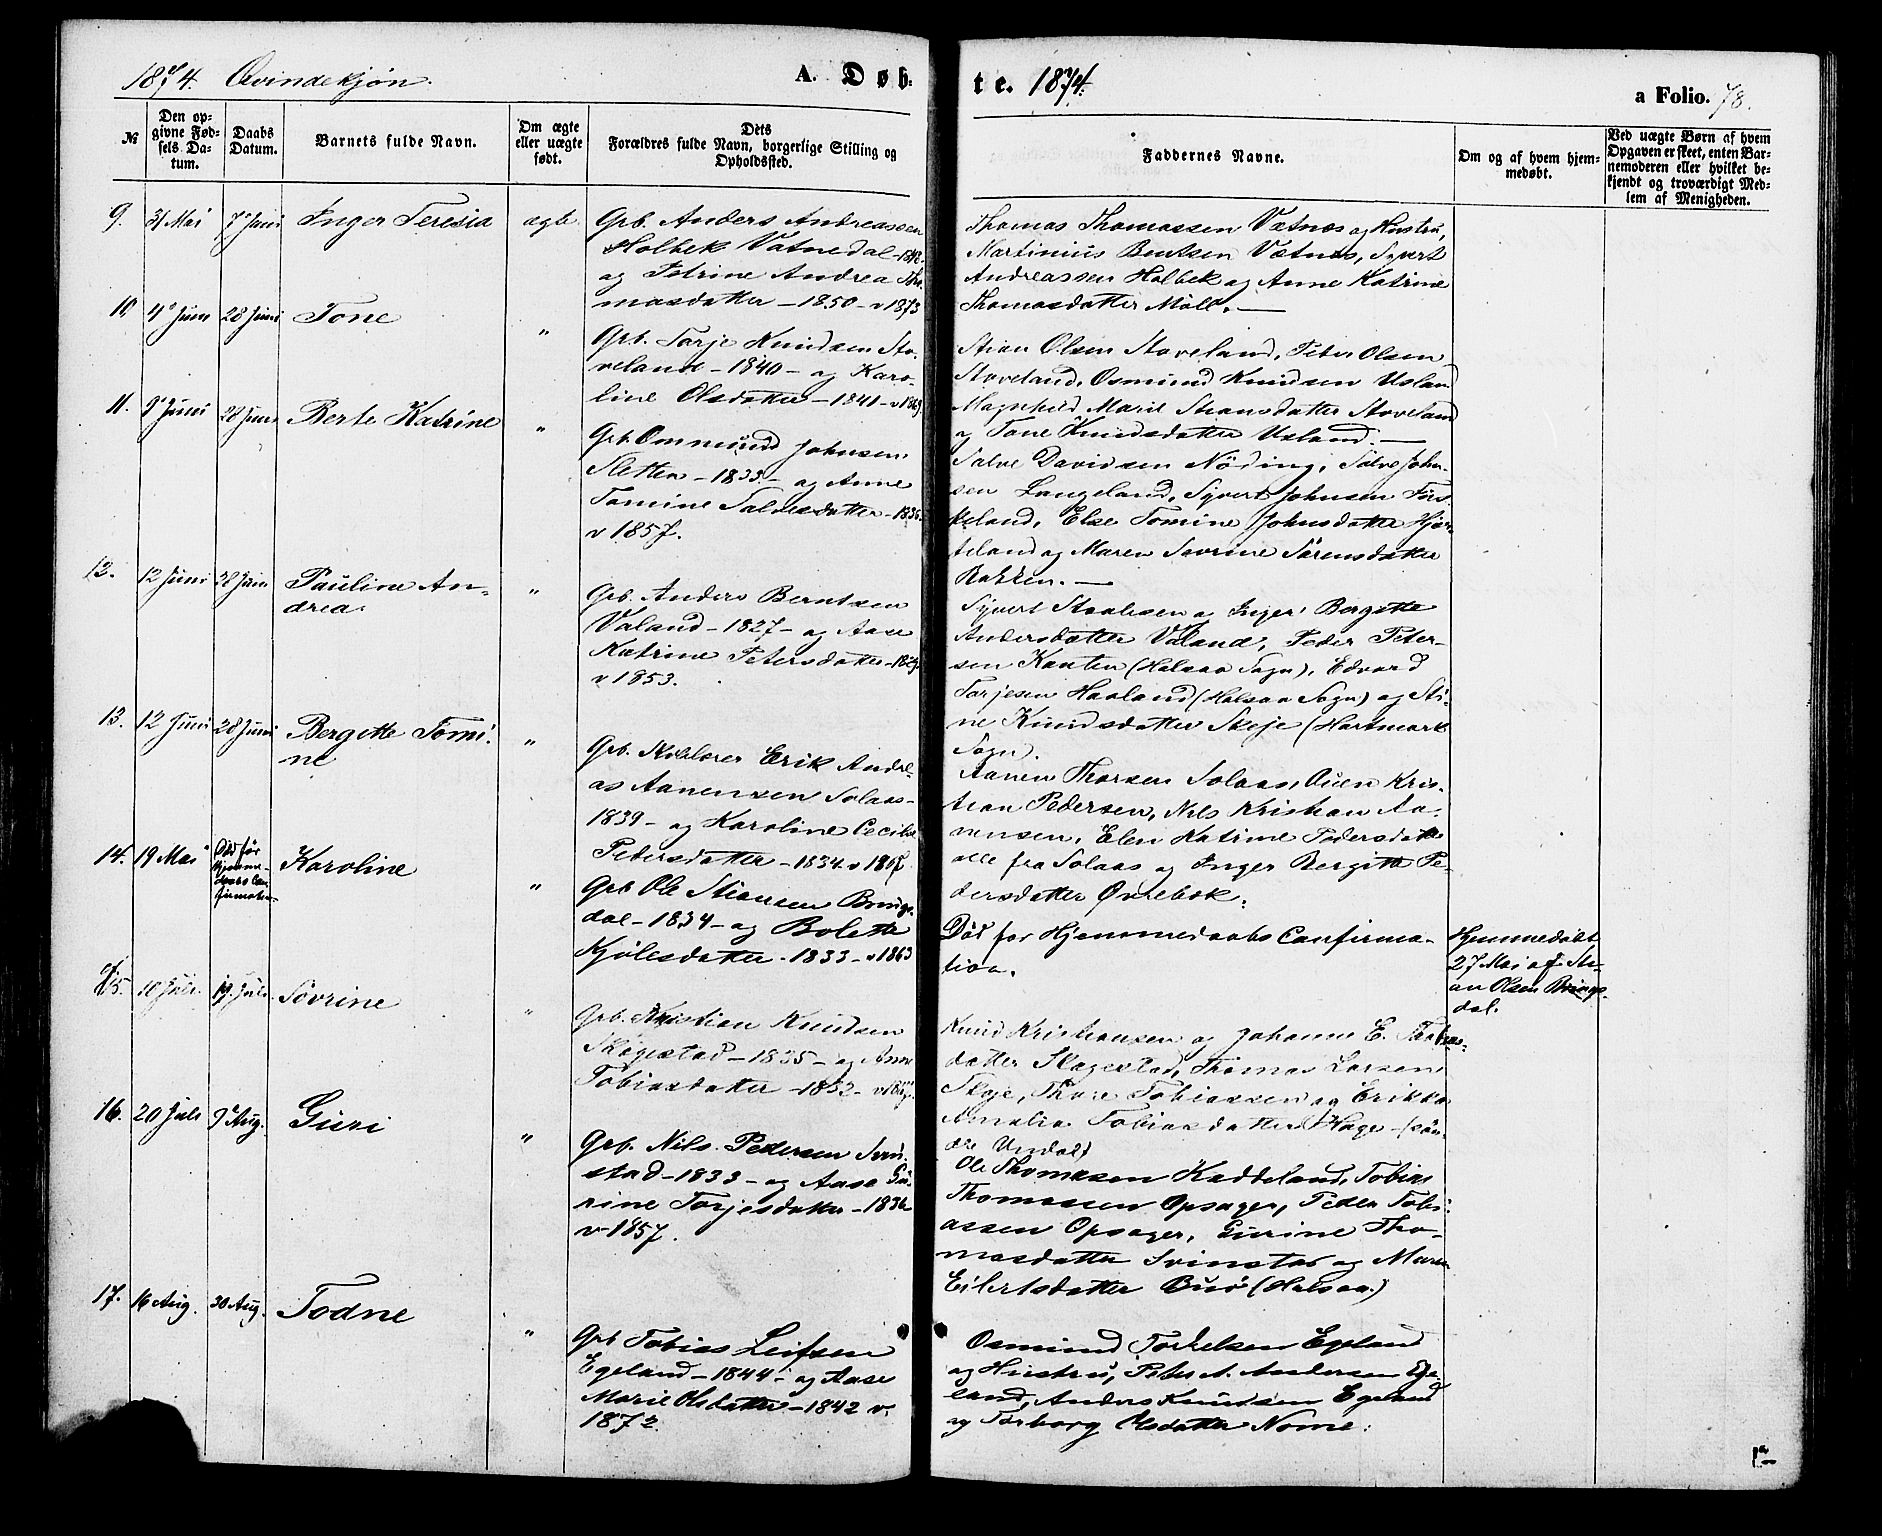 1874. Qvindekjøn.
A. Døb-
te. 1874.
a Folio. 78.
№
Den op-
givne Fød-
sels Da-
tum.
Daabs
Datum.
Barnets fulde Navn.
Om ægte
eller uægte
født.
Dets
Forældres fulde Navn, borgerlige Stilling og
Opholdssted.
Faddernes Navne.
Om og af hvem hjem-
medøbt.
Ved uægte Børn af hvem
Opgaven er skeet, enten Bar-
nemoderen eller hvilket be-
kjendt og troværdigt Med-
lem af Menigheden.
9. 31 Mai 7 Juni Inger Teresia ægte
Grb. Anders Andreassen
Holbek Vatnedal
og Petrine Andrea Tho-
masdatter - 1850 - v 1873
Thomas Thomassen Vatnes og Hustru,
Martinius Bentsen Vatnes, Syvert
Andreassen Holbek og Anne Katrine
Thomasdatter Møll. —
10 4 Juni 28 Juni Tone "
Grb. Tarje Knudsen Sto-
veland - 1840 - og Karo-
line Olsdatter - 1841 - v 1869
Stian Olsen Stoveland, Peter Olsen
Stoveland, Osmund Knudsen Usland
Magnhild Marie Stiansdatter Stoveland
og Tone Knudsdatter Usland. —
11. 9 Juni 28 Juni Berte Katrine "
Grb. Ommund Johnsen
Sletten - 1833 - og Anne
Tomine Salvesdatter - 1836
v 1857.
Salve Davidsen Nøding, Salve John-
sen Langeland, Syvert Johnsen
Else Tomine Johnsdatter
og Maren Sovrine Sørensdatter
Bakken. —
12. 12 Juni 28 Juni Pauline An-
drea.
"
Grb. Anders Berntsen
Valand - 1827 - og Aase
Katrine Petersdatter
v 1853.
Syvert Staalesen og Inger Bergitte
Andersdatter Valand, Peder Peter-
sen Kanten (Halsaa Sogn), Edvard
Tarjesen Haaland (Halsaa Sogn) og Sti-
ne Knudsdatter Skeje (Hartmark
Sogn).
13. 12 Juni 28 Juni Bergitte Tomi-
ne
"
Grb. Skolelærer Erik Andre-
as Aanensen Solaas -
1839 - og Karoline Cecilie
Petersdatter - 1834 v 1867
Aanen Thorsen Solaas, Ouen Kris-
tian Pedersen, Nils Kristian Aa-
nensen, Elen Katrine Pedersdatter
alle fra Solaas og Inger Bergitte Pe-
dersdatter Øvrebøk.
14. 19 Mai Død før
Hjemme-
daabs Con-
firmation
Karoline "
Grb. Ole Stiansen Brings-
dal - 1834 - og Bolette
Kjølesdatter - 1833 - v 1863
Død før Hjemmedaabs Confirma-
tion.
Hjemmedøbt
27 Mai af Sti-
an Olsen Brings-
dal.
15. 10 Juli 19 Juli Sovrine "
Grb. Kristian Knudsen
Skogestad - 1835 - og Anne
Tobiasdatter - 1832 -
Knud Kristiansen og Johanne E. Tobias-
datter Skagestad, Thomas Larsen
Skeje, Thore Tobiassen og Erikka
Amalia Tobiasdatter Hage (søn-
dre Undal)
16. 20 Juli 9 Aug. Guri "
Grb. Nils Pedersen Svin-
stad - 1833 - og Aase Gu-
rine Tarjesdatter - 1836
v 1857.
Ole Thomasen Kaddeland, Tobias
Thomassen Opsager, Peder Tobi-
assen Opsager, Gurine Tho-
masdatter Svinstad og Maren
Eilertsdatter Buø (Halsaa)
17. 16 Aug. 30 Aug. Todne "
Grb. Tobias Leifsen
Egeland - 1844 - og Aase
Marie Olsdatter - 1842 v.
1872.
Osmund Torkelsen Egeland
og Hustru, Peter A. Andersen Ege-
land, Anders Knutsen Egeland
og Torborg Olsdatter Nome.